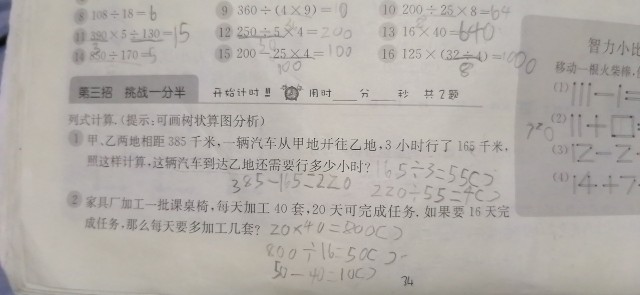 ⑧ 108÷18=6 ⑨ 360÷(4×9)=10 ⑩ 200÷25×8=64
⑪ 390×5÷130=15 ⑫ 250÷5×4=200 ⑬ 16×40=640
850÷170=5 ⑮ 200-25×4=100 ⑯ 125×(32÷4)=1000
50
100
8
智力小比
移动一根火柴棒,
(1)
(2)
(3)
(4)
第三招 挑战一分半 开始计时!! 用时 分 秒 共2题
列式计算.(提示:可画树状算图分析)
① 甲、乙两地相距385千米,一辆汽车从甲地开往乙地,3小时行了165千米,
照这样计算,这辆汽车到达乙地还需要行多少小时? 165÷3=55( )
385-165=220 220÷55=4( )
② 家具厂加工一批课桌椅,每天加工40套,20天可完成任务.如果要16天完
成任务,那么每天要多加工几套? 20×40=800( )
800÷16=50( )
50-40=10( )
74